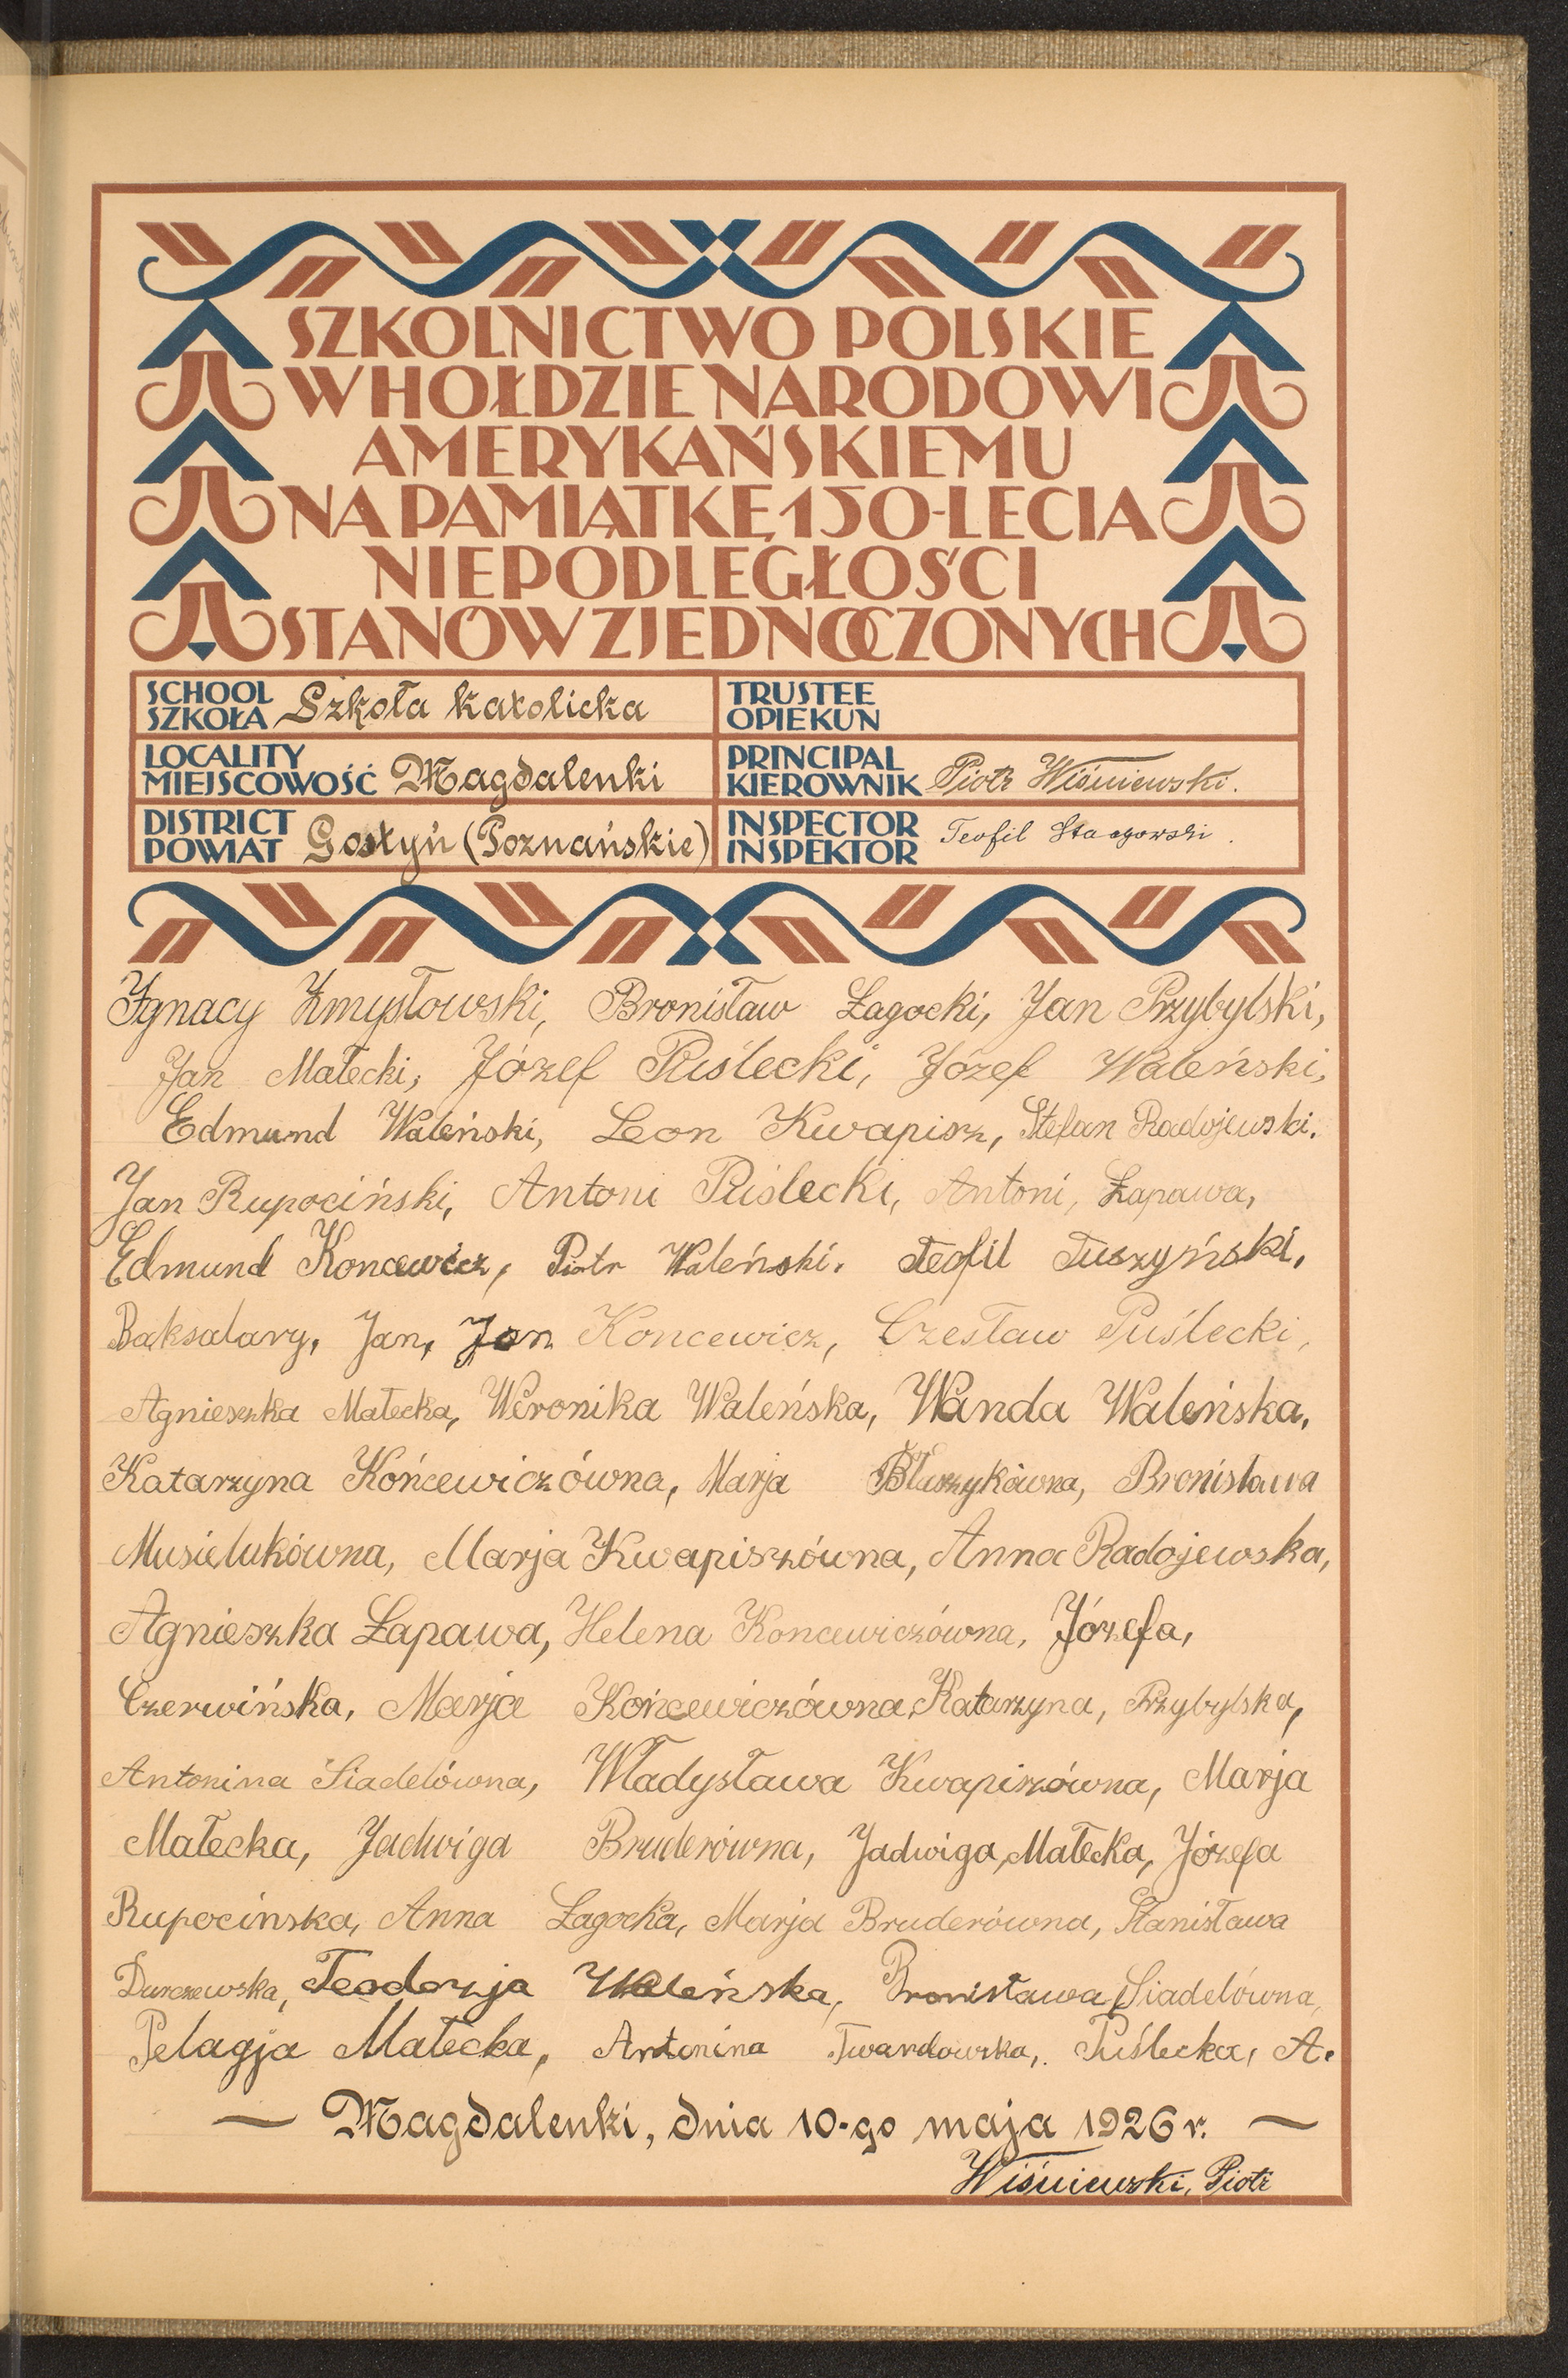 SZKOLNICTWO POLSKIE
W HOŁDZIE NARODOWI
AMERYKAŃSKIEMU
NA PAMIĄTKĘ 150-LECIA
NIEPODLEGŁOŚCI
STANÓW ZJEDNOCZONYCH
SCHOOL
SZKOŁA Szkoła katolicka
TRUSTEE
OPIEKUN
LOCALITY
MIEJSCOWOŚĆ Magdalenki
PRINCIPAL
KIEROWNIK Piotr Wiśniewski.
DISTRICT
POWIAT Gostyń (Poznańskie)
INSPECTOR
INSPEKTOR Teofil
Ignacy Zmysłowski, Bronisław Łagocki, Jan Przybylski,
Jan Małecki, Józef Puślecki, Józef Waleński,
Edmund Waleński, Leon Kwapisz, Stefan Radojewski.
Jan Rupociński, Antoni Puślecki, Antoni, Łapawa,
Edmund Koncewicz, Piotr Waleński. Teofil Tuszyński.
Baksalary, Jan, Jan Koncewicz, Czesław Puślecki,
Agnieszka Małecka, Weronika Waleńska, Wanda Waleńska,
Katarzyna Końcewiczówna, Marja Błaszykówna, Bronisława
Musielukówna, Marja Kwapiszówna, Anna Radojewska,
Agnieszka Łapawa, Helena Koncewiczówna, Józefa,
Czerwińska, Marja Końcewiczówna, Katarzyna, Przybylska,
Antonina Siadelówna, Władysława Kwapiszówna, Marja
Małecka, Jadwiga Bruderówna, Jadwiga, Małecka, Józefa
Rupocinska, Anna Łagocka, Marja Bruderówna, Stanisława
Teodozja Waleńska, Bronisława Siadelówna,
Pelagja Małecka, Antonina Twardowska, Puślecka, A.
— Magdalenki, dnia 10-go maja 1926 r. —
Wiśniewski, Piotr